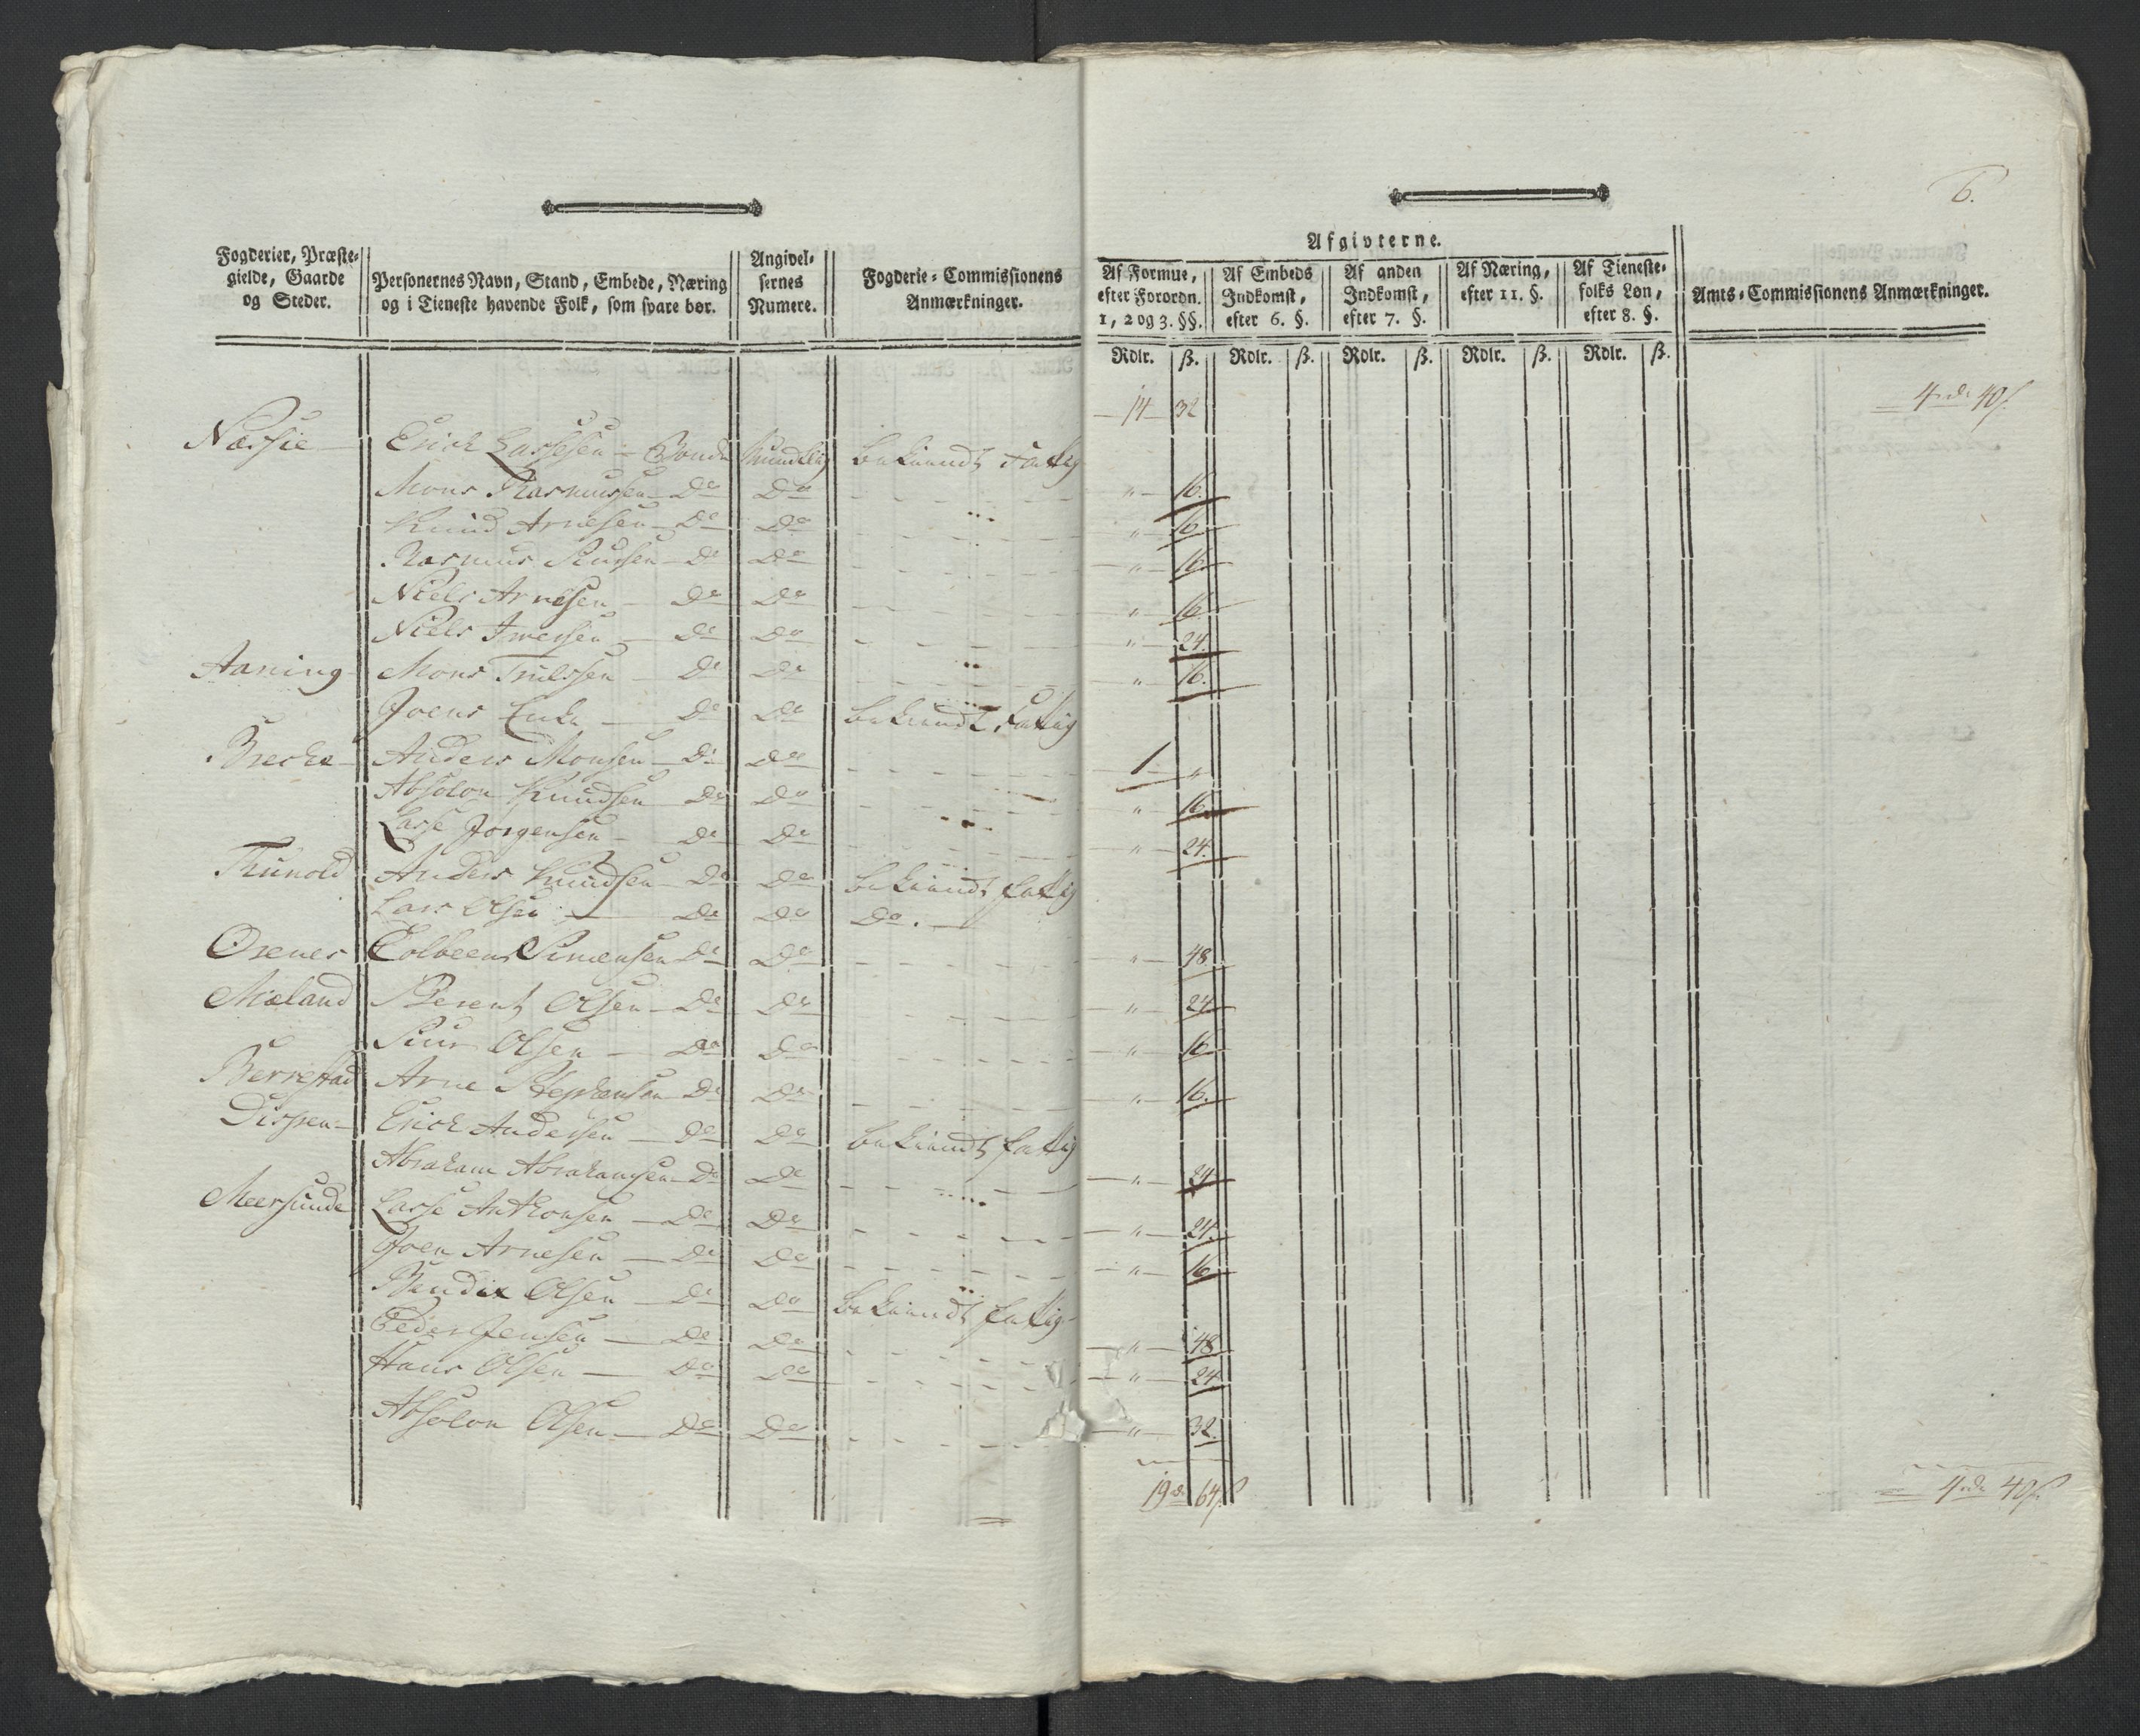 6.
Fogderier, Præste-
gielde, Gaarde
og Steder.
Personernes Navn, Stand, Embede, Næring
og i Tieneste havende Folk, som svare bør.
Angivel-
sernes
Numere.
Fogderie-Commissionens
Anmærkninger.
Afgivterne.
Af Formue,
efter Forordn.
1, 2 og 3. §§.
Af Embeds
Indkomst,
efter 6. §.
Af anden
Indkomst,
efter 7. §.
Af Næring,
efter 11. §.
Af Tieneste-
folks Løn,
efter 8. §.
Amts-Commissionens Anmærkninger.
Rdlr. ß. Rdlr. ß. Rdlr. ß. Rdlr. ß. Rdlr. ß.
14 32 4 rdr 40ß
Næssie Erick Lassesen Bonde Mundtlig bekiendt fattig
Mons Rasmussen Do Do " 16.
Knud Arnesen Do Do " 16
Rasmus Siursen Do Do " 16
Niels Arnesen Do Do " 16
Niels Iversen Do Do " 24.
Aaning Mons Trulssen Do Do " 16.
Joens Enke Do Do bekiendt fattig
Brecke Anders Monsen Do Do 1 "
Absolon Knudsen Do Do " 16
Lasse Jørgensen Do Do " 24.
Trunold Anders Knudsen Do Do bekiendt fattig
Lars Olsen Do Do Do.
Oxenes Colbeens Simensen Do Do " 48
Mieland Berent Olsen Do Do " 24
Siur Olsen Do Do " 16
Berrestad Arne Stephensen Do Do " 16.
Dispen Erick Andersen Do Do bekiendt fattig
Abraham Abrahamsen Do Do " 24
Meersunde Lasse Anthonsen Do Do " 24.
Joen Arnesen Do Do " 16
Bendix Olsen Do Do bekiendt fattig
Peder Jensen Do Do " 48
Hans Olsen Do Do " 24
Absolon Olsen Do Do " 32.
19 rdr 64ß 4 rdr 40ß